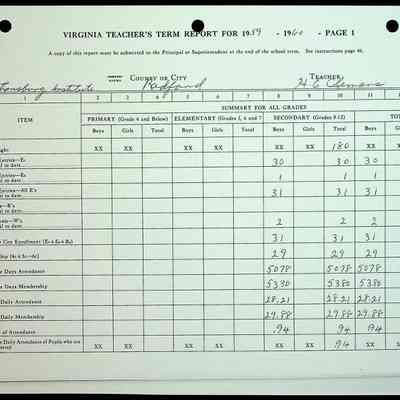 VIRGINIA TEACHER'S TERM REPORT FOR 1959 - 1960 - PAGE 1
A copy of this report must be submitted to the Principal or Superintendent at the end of the school term. See instructions page 46.
COUNTY OR CITY TEACHER
Institute Radford H. C.
1 2 3 4 5 6 7 8 9 10 11
SUMMARY FOR ALL GRADES
ITEM PRIMARY (Grade 4 and Below) ELEMENTARY (Grades 5, 6 and 7 SECONDARY (Grades 8-12) TOT
Boys Girls Total Boys Girls Total Boys Girls Total Boys
XX XX XX XX XX XX 180 XX
30 30 30
1 1 1
31 31 31
2 2 2
City Enrollment 31 31 31
29 29 29
Days Attendance 5078 5078 5078
Days Membership 5380 5380 5380
Daily Attendance 28.21 28.21 28.21
Daily Membership 29.88 29.88 29.88
of Attendance 94 94 94
Daily Attendance of Pupils who are XX XX XX XX XX XX 94 XX